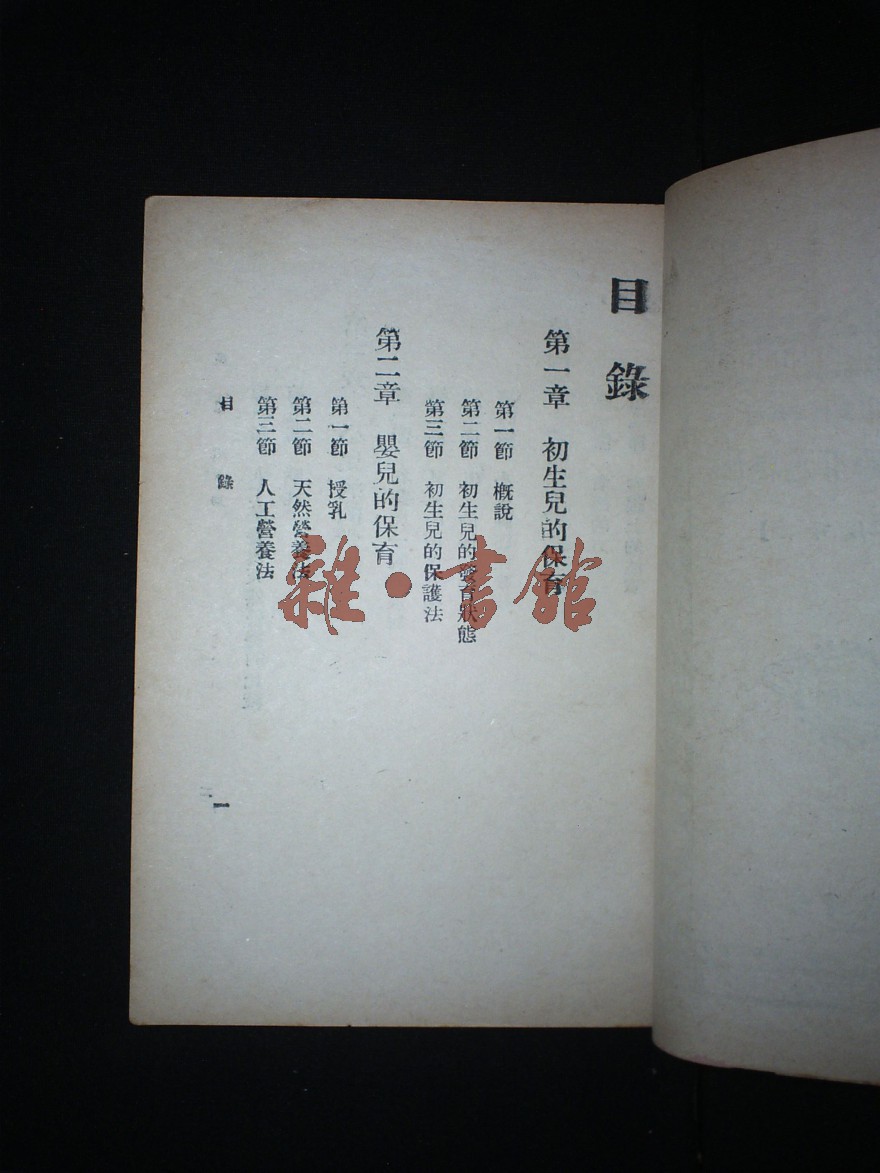 目錄
第一章 初生兒的保育
第一節 概說
第二節 初生兒的發育狀態
第三節 初生兒的保護法
第二章 嬰兒的保育
第一節 授乳
第二節 天然營養法
第三節 人工營養法
目錄
一
雜·書館